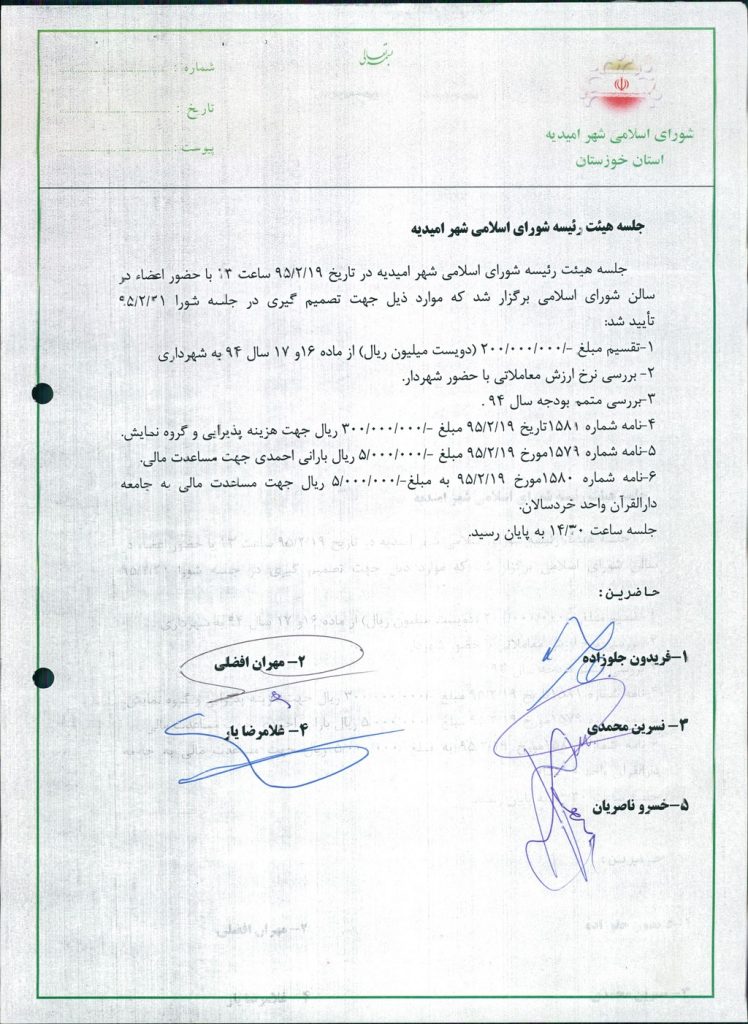 بسمه تعالی
شماره :
تاریخ :
پیوست :
شورای اسلامی شهر امیدیه
استان خوزستان
جلسه هیئت رئیسه شورای اسلامی شهر امیدیه
جلسه هیئت رئیسه شورای اسلامی شهر امیدیه در تاریخ ۹۵/۲/۱۹ ساعت با حضور اعضاء در
سالن شورای اسلامی برگزار شد که موارد ذیل جهت تصمیم گیری در جلسه شورا ۹۵/۲/۲۱
تأیید شد:
۱-تقسیم مبلغ -/۲۰۰/۰۰۰/۰۰۰ (دویست میلیون ریال) از ماده ۱۶و ۱۷ سال ۹۴ به شهرداری
۲- بررسی نرخ ارزش معاملاتی با حضور شهردار.
۳-بررسی متمم بودجه سال ۹۴ .
۴-نامه شماره ۱۵۸۱تاریخ ۹۵/۲/۱۹ مبلغ -/۳۰۰/۰۰۰/۰۰۰ ریال جهت هزینه پذیرایی و گروه نمایش.
۵-نامه شماره ۱۵۷۹مورخ ۹۵/۲/۱۹ مبلغ -/۵/۰۰۰/۰۰۰ ریال بارانی احمدی جهت مساعدت مالی.
۶-نامه شماره ۱۵۸۰مورخ ۹۵/۲/۱۹ به مبلغ-/۵/۰۰۰/۰۰۰ ریال جهت مساعدت مالی به جامعه
دارالقرآن واحد خردسالان.
جلسه ساعت ۱۴/۳۰ به پایان رسید.
حاضرین:
۱-فریدون جلوزاده
۲- مهران افضلی
۳- نسرین محمدی
۴- غلامرضا یار
۵-خسرو ناصریان